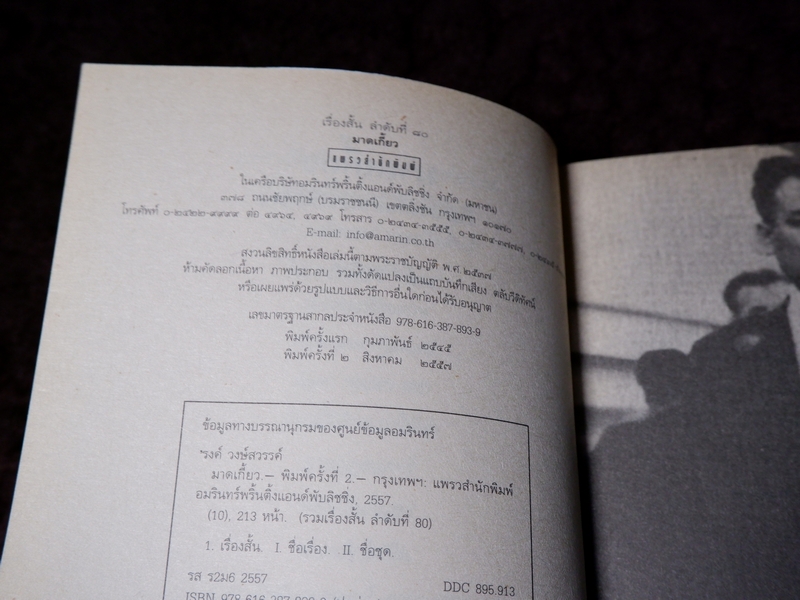 เรื่องสั้น ลำดับที่ ๘๐
มาดเกี้ยว
แพรวสำนักพิมพ์
ในเครือบริษัทอมรินทร์พริ้นติ้งแอนด์พับลิชชิ่ง จำกัด (มหาชน)
๓๗๘ ถนนชัยพฤกษ์ (บรมราชชนนี) เขตตลิ่งชัน กรุงเทพฯ ๑๐๑๗๐
โทรศัพท์ ๐-๒๔๒๒-๙๙๙๙ ต่อ ๔๙๖๔, ๔๙๖๙ โทรสาร ๐-๒๔๓๔-๓๕๕๕, ๐-๒๔๓๔-๓๗๗๗,
E-mail: info@amarin.co.th
สงวนลิขสิทธิ์หนังสือเล่มนี้ตามพระราชบัญญัติ พ.ศ. ๒๕๓๗
ห้ามคัดลอกเนื้อหา ภาพประกอบ รวมทั้งดัดแปลงเป็นแถบบันทึกเสียง ตลับวีดิทัศน์
หรือเผยแพร่ด้วยรูปแบบและวิธีการอื่นใดก่อนได้รับอนุญาต
เลขมาตรฐานสากลประจำหนังสือ 978-616-387-893-9
พิมพ์ครั้งแรก กุมภาพันธ์ ๒๕๔๕
พิมพ์ครั้งที่ ๒ สิงหาคม ๒๕๕๗
ข้อมูลทางบรรณานุกรมของศูนย์ข้อมูลอมรินทร์
'รงค์ วงษ์สวรรค์
มาดเกี้ยว.— พิมพ์ครั้งที่ 2.— กรุงเทพฯ: แพรวสำนักพิมพ์
อมรินทร์พริ้นติ้งแอนด์พับลิชชิ่ง, 2557.
(10), 213 หน้า. (รวมเรื่องสั้น ลำดับที่ 80)
1. เรื่องสั้น. I. ชื่อเรื่อง. II. ชื่อชุด.
รส ร2ม6 2557
DDC 895.913
ISBN 978-616-387-893-9